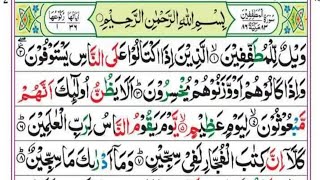 سورة المطففين
بِسْمِ اللّٰهِ الرَّحْمٰنِ الرَّحِيْمِ
وَيْلٌ لِّلْمُطَفِّفِيْنَ ۙ الَّذِيْنَ اِذَا اكْتَالُوْا عَلَى النَّاسِ يَسْتَوْفُوْنَ
وَاِذَا كَالُوْهُمْ اَوْ وَّزَنُوْهُمْ يُخْسِرُوْنَ ؕ اَلَا يَظُنُّ اُولٰٓئِكَ اَنَّهُمْ
مَّبْعُوْثُوْنَ ۙ لِيَوْمٍ عَظِيْمٍ ۙ يَّوْمَ يَقُوْمُ النَّاسُ لِرَبِّ الْعٰلَمِيْنَ
كَلَّآ اِنَّ كِتٰبَ الْفُجَّارِ لَفِيْ سِجِّيْنٍ ؕ وَمَآ اَدْرٰىكَ مَا سِجِّيْنٌ